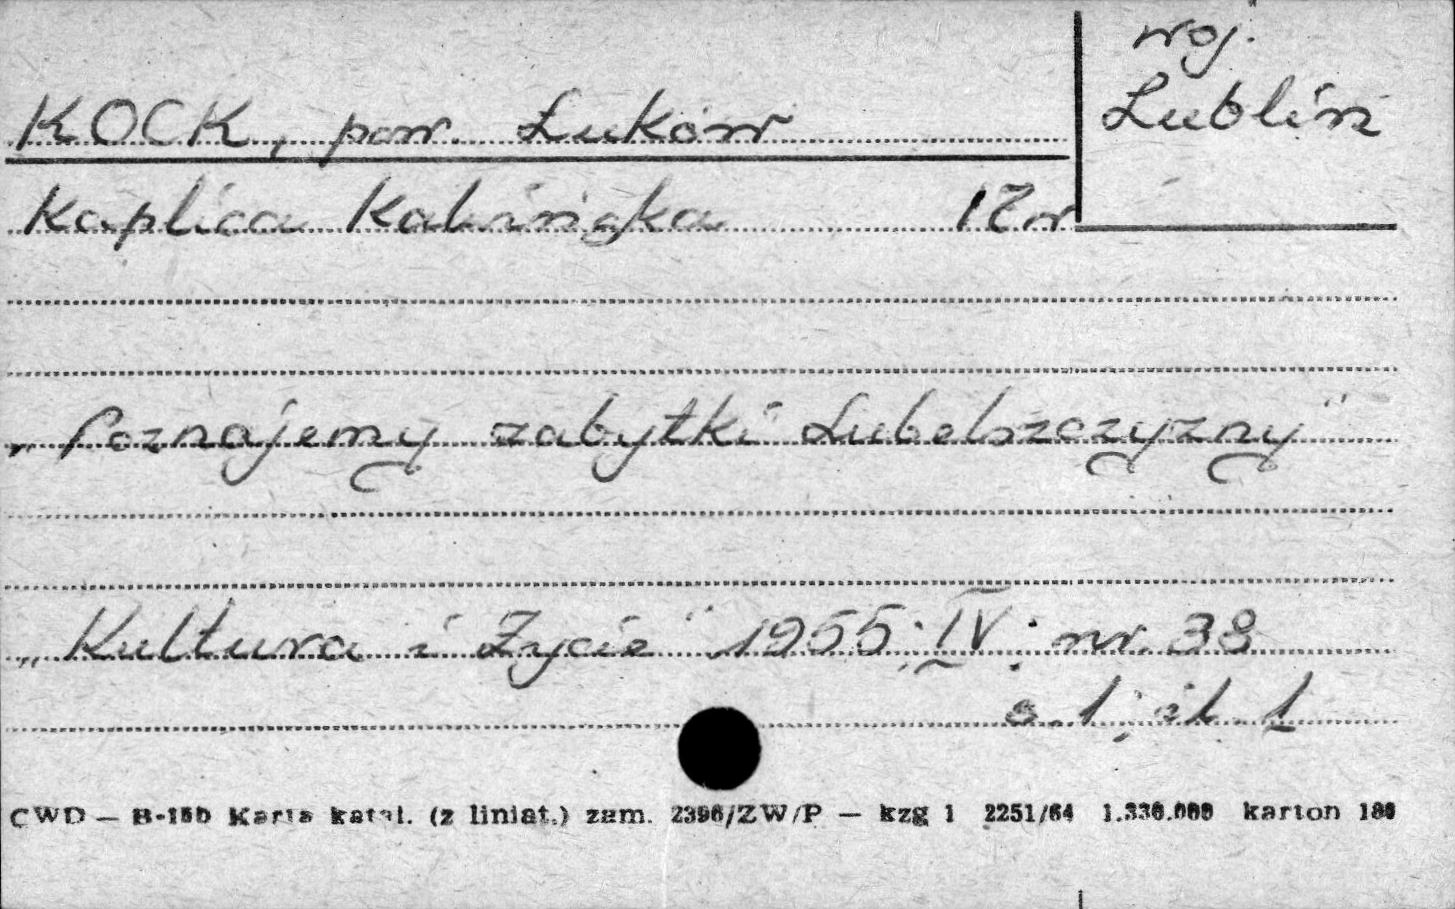 woj.
Lublin
KOCK, pow. Łuków
Kaplica Kalińska 17 w
„Poznajemy zabytki Lubelszczyzny"
„Kultura i Życie" 1955; IV; nr. 38
s. 1; il. 1
CWD — B-15b Karta katal. (z liniat.) zam. 2396/ZW/P — kzg 1 2251/64 1.330.000 karton 180